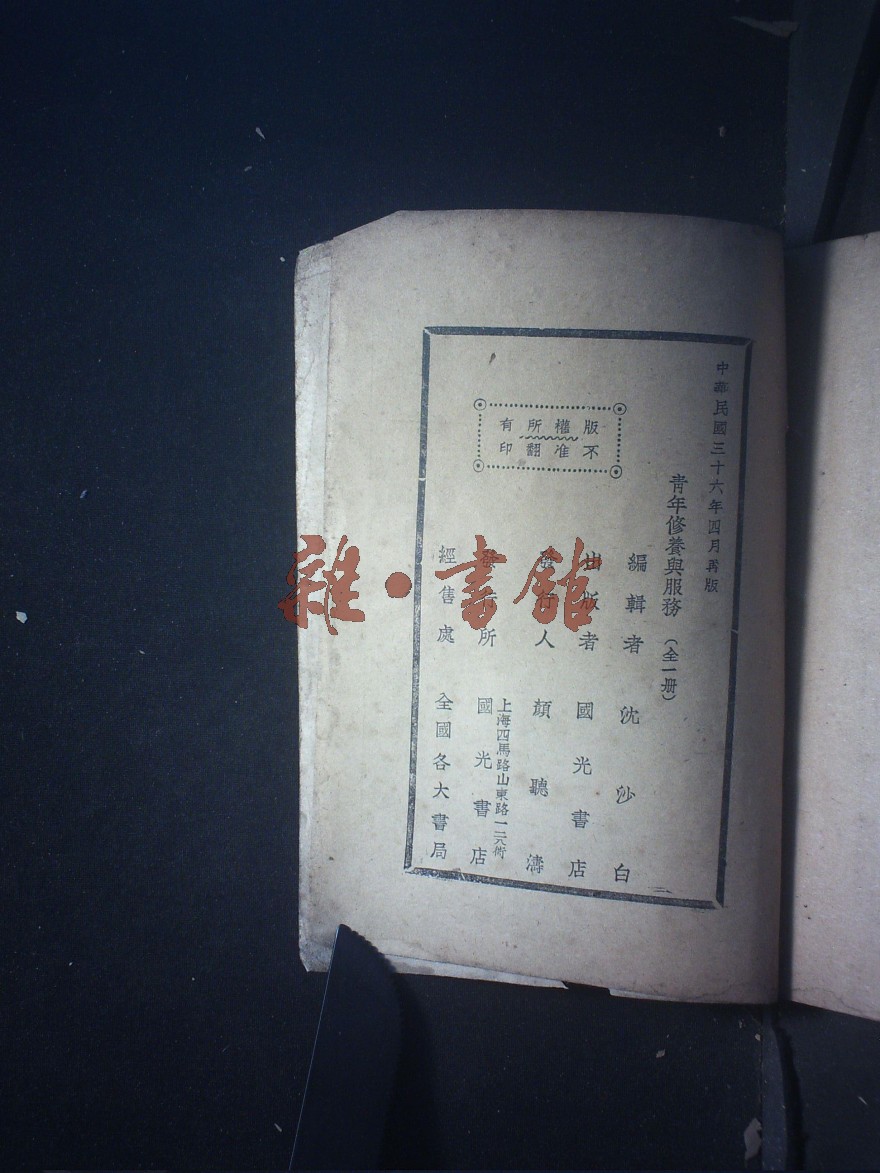 中華民國三十六年四月再版
青年修養與服務（全一册）
編輯者 沈沙白
出版者 國光書店
發行人 顏聽濤
發行所 國光書店
上海四馬路山東路
經售處 全國各大書局
版權所有
不准翻印
雜·書館